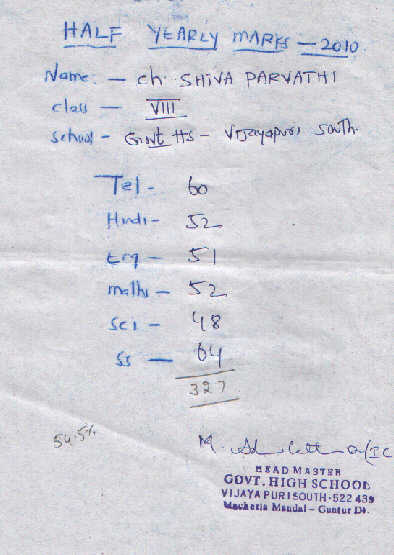 HALF YEARLY MARKS - 2010
Name. - ch. SHIVA PARVATHI
class - VIII
school - Govt HS - Vijayapuri South.
Tel - 60
Hindi - 52
Eng - 51
maths - 52
Sci - 48
SS - 64
327
54.5%
HEAD MASTER
GOVT. HIGH SCHOOL
VIJAYAPURI SOUTH-522 439
Macherla Mandal - Guntur Dt.